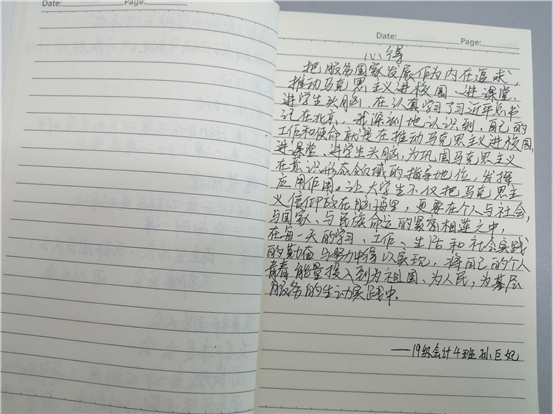 Date:
Page:
Date:
Page:
心得
把服务国家发展作为内在追求,
推动马克思主义进校园、进课堂、
进学生头脑,在认真学习了习近平总书
记在北京,我深刻地认识到,自己的
工作和使命就是在推动马克思主义进校园,
进课堂、进学生头脑,为巩固马克思主义
在意识形态领域的指导地位,发挥
应用作用。让大学生不仅把马克思主
义信仰放在脑海里,更要在个人与社会,
与国家、与民族命运的紧密相连之中,
在每一天的学习、工作、生活和社会实践
的勤奋与努力中得以展现,将自己的个人
青春能量投入到为祖国、为人民,为基层
服务的生动实践中。
——19级会计4班 孙巨妃